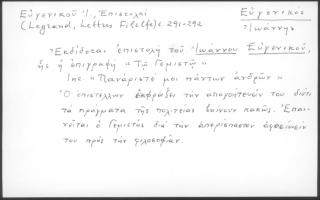 Εὐγενικοῦ Ἰ., Ἐπιστολαί
(Legrand, Lettres Filelfe) σ. 291-292
Εὐγενικὸς
Ἰωάννης
Ἐκδίδεται ἐπιστολὴ τοῦ Ἰωάννου Εὐγενικοῦ,
ἧς ἡ ἐπιγραφὴ «Τῷ Γεμιστῷ»
Inc. «Πανάριστέ μοι πάντων ἀνδρῶν»
Ὁ ἐπιστέλλων ἐκφράζει τὴν ἀπογοήτευσίν του διότι
τὰ πράγματα τῆς πολιτείας βαίνουν κακῶς. Ἐπαι-
νεῖται ὁ Γεμιστὸς διὰ τὴν ἀπερίσπαστον ἀφοσίωσίν
του πρὸς τὴν φιλοσοφίαν.